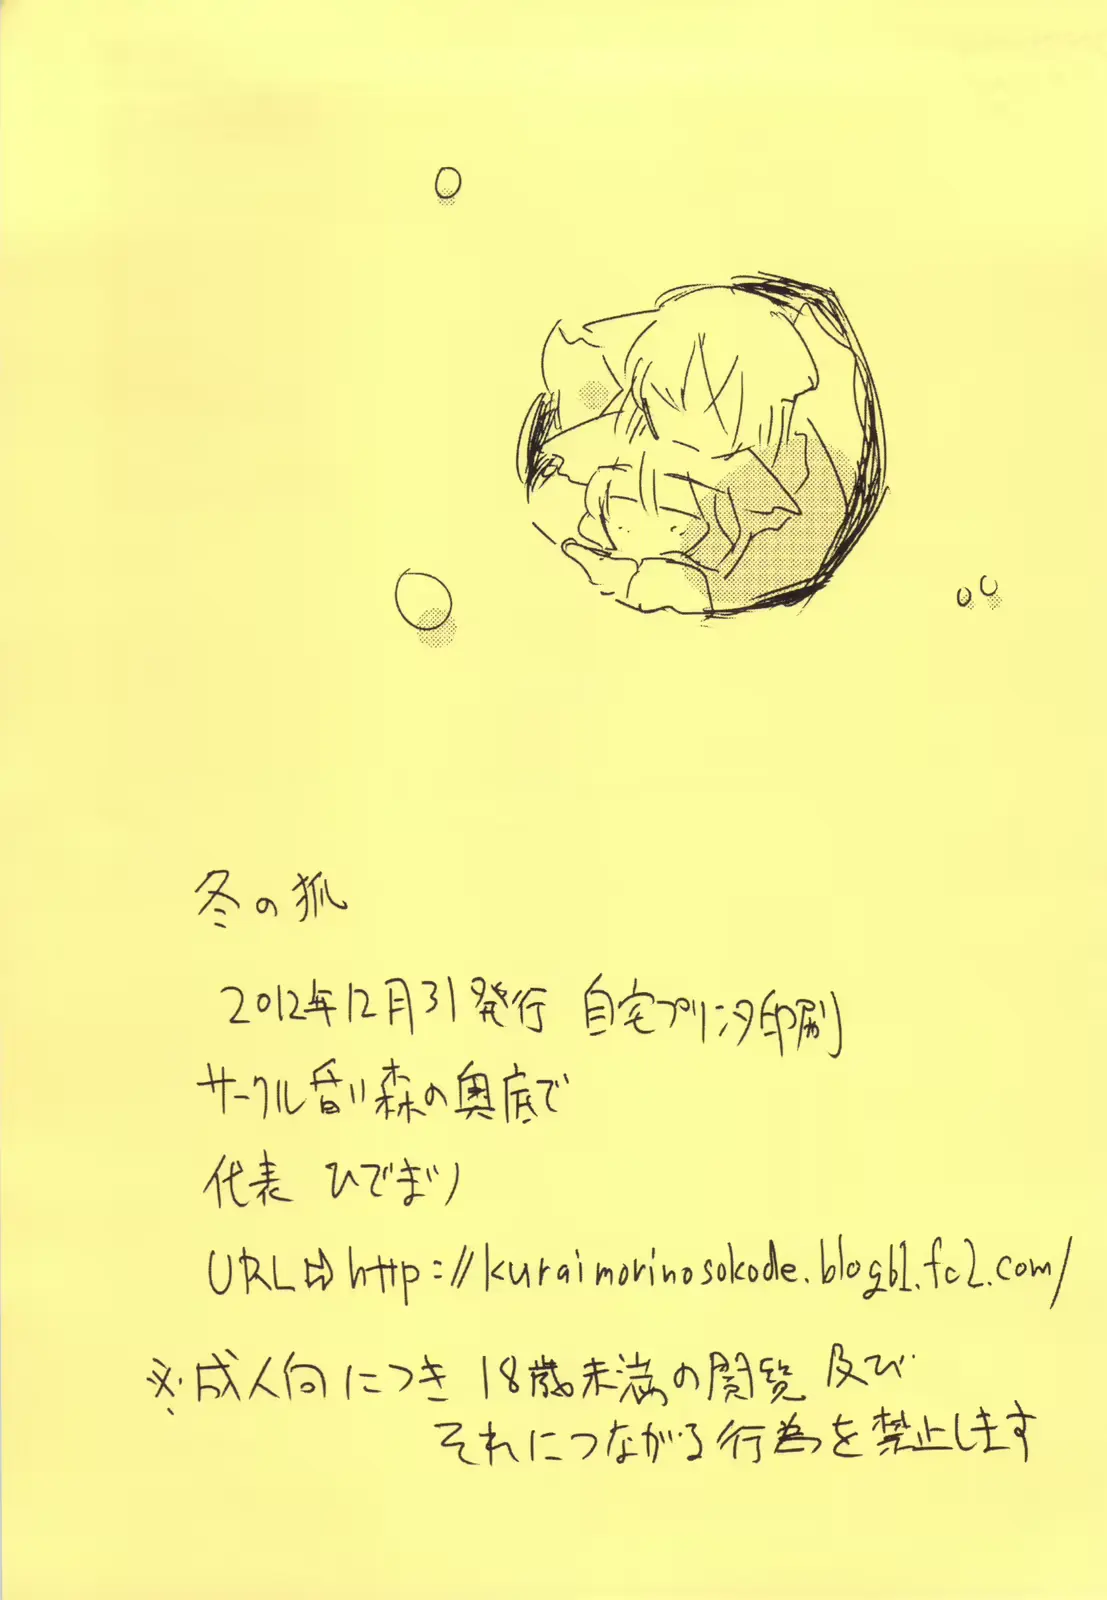 冬の狐
2012年12月31発行 自宅プリンタ印刷
サークル 昏い森の奥底で
代表 ひでまり
URL⇨http://kuraimorinosokode.blog61.fc2.com/
※成人向につき 18歳未満の閲覧 及び
それにつながる行為を禁止します